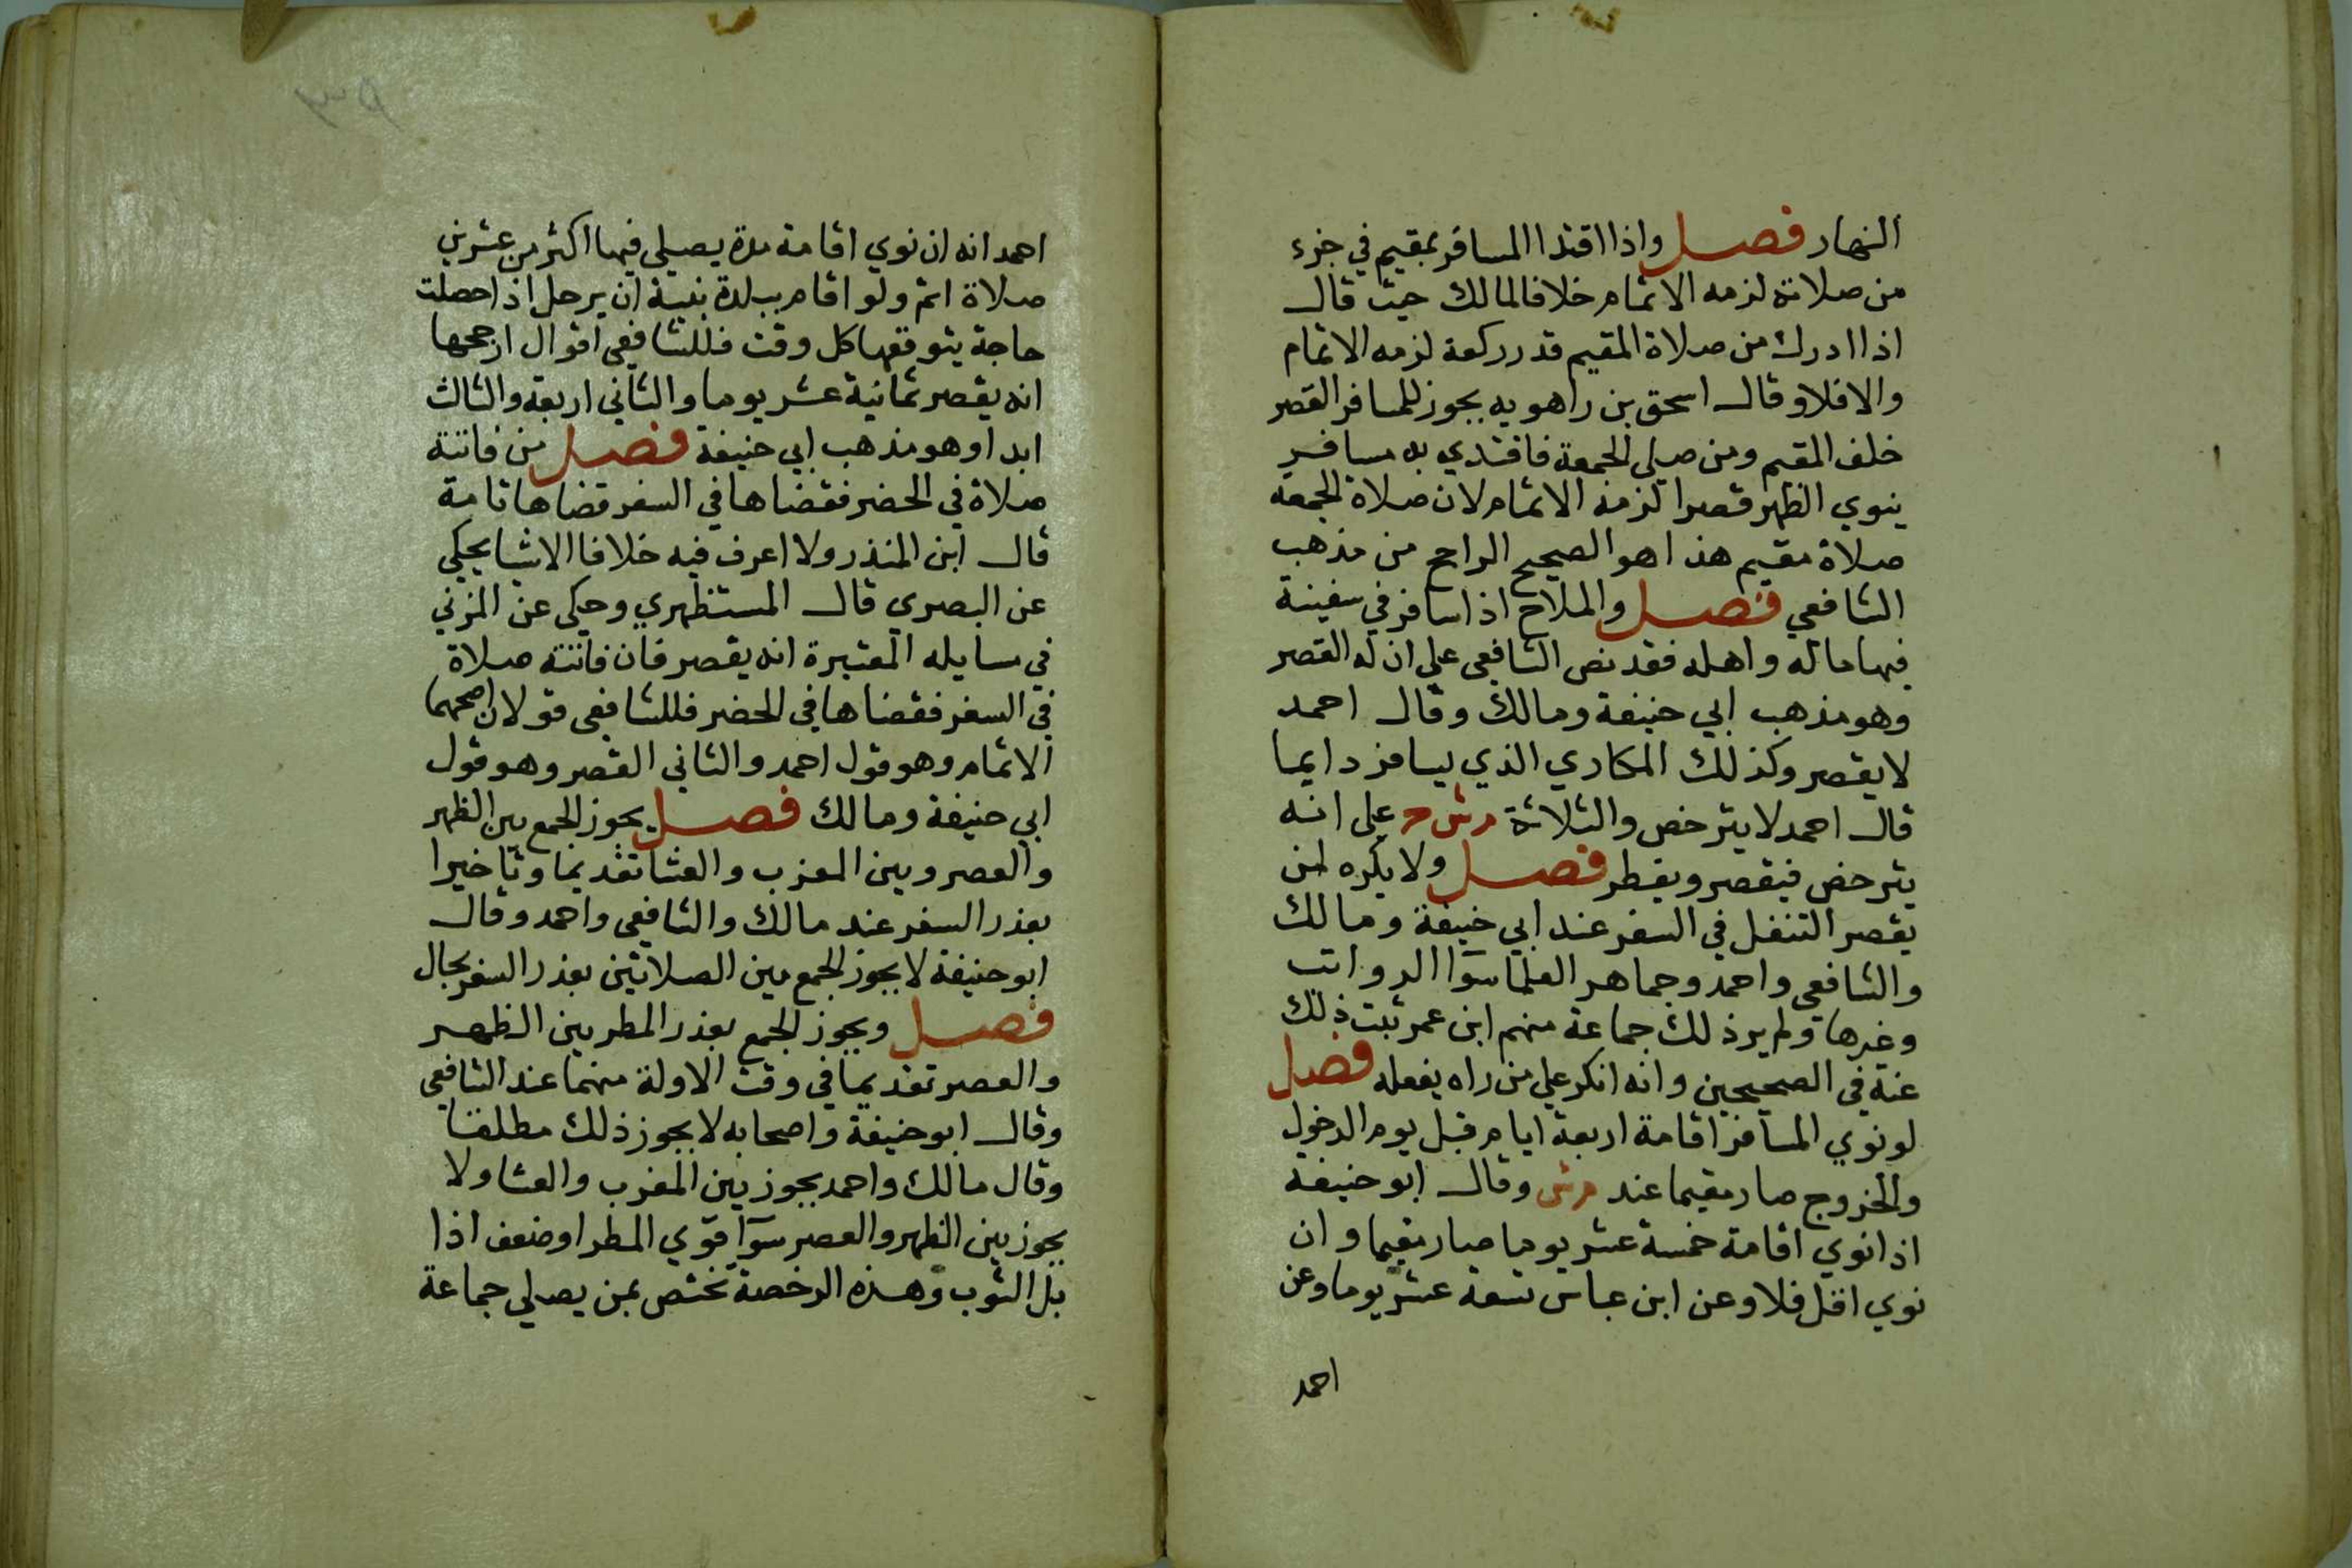 النهار فصل واذا اقتدا المسافر بمقيم في جزء
من صلاته لزمه الاتمام خلافا لمالك حيث قال
اذا ادرك من صلاة المقيم قدر ركعة لزمه الاتمام
والا فلا وقال اسحق بن راهويه يجوز للمسافر القصر
خلف المقيم ومن صلي الجمعة فاقتدي به مسافر
ينوي الظهر قصرا لزمه الاتمام لان صلاة الجمعة
صلاة مقيم هذا هو الصحيح الراجح من مذهب
الشافعي فصل والملاح اذا سافر في سفينة
فيها ماله واهله فقد نص الشافعي علي ان له القصر
وهو مذهب ابي حنيفة ومالك وقال احمد
لا يقصر وكذلك المكاري الذي يسافر دايما
قال احمد لا يترخص والثلاثة مرش ح علي انه
يترخص فيقصر ويفطر فصل ولا يكره لمن
يقصر التنفل في السفر عند ابي حنيفة ومالك
والشافعي واحمد وجماهر العلما سوآ الرواتب
وغيرها ولم ير ذلك جماعة منهم ابن عمر ثبت ذلك
عنه في الصحيحين وانه انكر علي من راه يفعله فصل
لو نوي المسافر اقامة اربعة ايام قبل يوم الدخول
والخروج صار مقيما عند مرش وقال ابو حنيفة
اذا نوي اقامة خمسة عشر يوما صار مقيما وان
نوي اقل فلا وعن ابن عباس تسعة عشر يوما وعن
احمد
احمد انه ان نوي اقامة مدة يصلي فيها اكثر من عشرين
صلاة اتم ولو اقام ببلدة بنية ان يرحل اذا حصلت
حاجة يتوقعها كل وقت فللشافعي اقوال ارجحها
انه يقصر ثمانية عشر يوما والثاني اربعة والثالث
ابدا وهو مذهب ابي حنيفة فصل من فاتته
صلاة في الحضر فقضاها في السفر قضاها تامة
قال ابن المنذر ولا اعرف فيه خلافا الا شيا يحكي
عن البصري قال المستظهري وحكي عن المزني
في مسايله المعتبرة انه يقصر فان فاتته صلاة
في السفر فقضاها في الحضر فللشافعي قولان اصحهما
الاتمام وهو قول احمد والثاني القصر وهو قول
ابي حنيفة ومالك فصل يجوز الجمع بين الظهر
والعصر وبين المغرب والعشا تقديما وتاخيرا
بعذر السفر عند مالك والشافعي واحمد وقال
ابو حنيفة لا يجوز الجمع بين الصلاتين بعذر السفر بحال
فصل ويجوز الجمع بعذر المطر بين الظهر
والعصر تقديما في وقت الاولة منهما عند الشافعي
وقال ابو حنيفة واصحابه لا يجوز ذلك مطلقا
وقال مالك واحمد يجوز بين المغرب والعشا ولا
يجوز بين الظهر والعصر سوآ قوي المطر او ضعف اذا
بل الثوب وهذه الرخصة تختص بمن يصلي جماعة